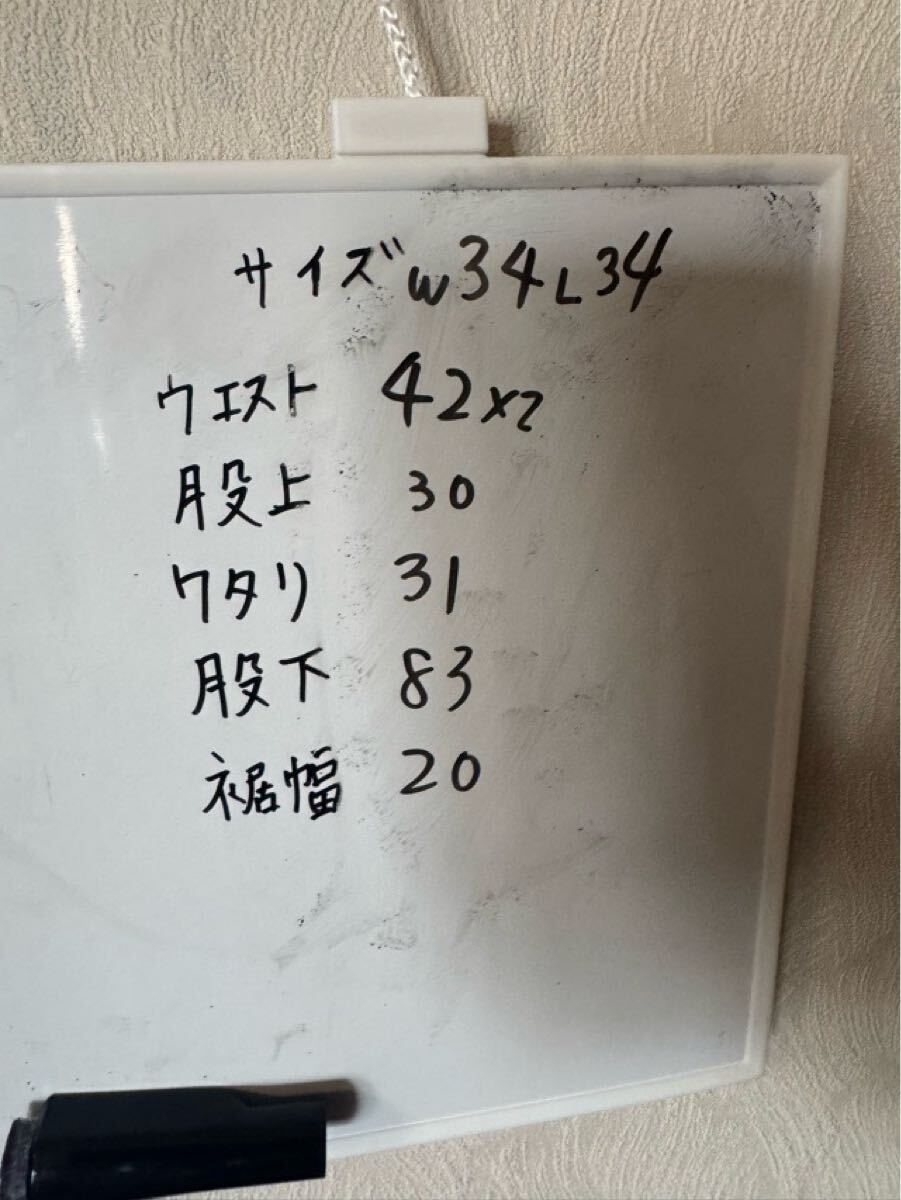 サイズ W34 L34
ウエスト 42×2
股上 30
ワタリ 31
股下 83
裾幅 20